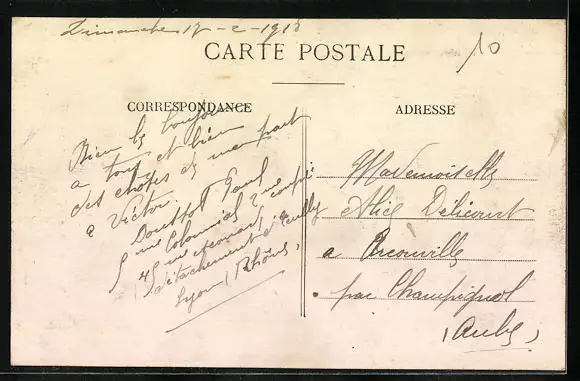 Dimanche 17-2-1918
10
CARTE POSTALE
CORRESPONDANCE
ADRESSE
Bien le bonjour
a tous et bien
des choses de ma part
a Victor.
Doussot Paul
5me Colonial 2me
45me compie
détachement d'Ecully
Lyon (Rhône)
Mademoiselle
Alice Délicourt
a Arconville
par Champignol
(Aube)